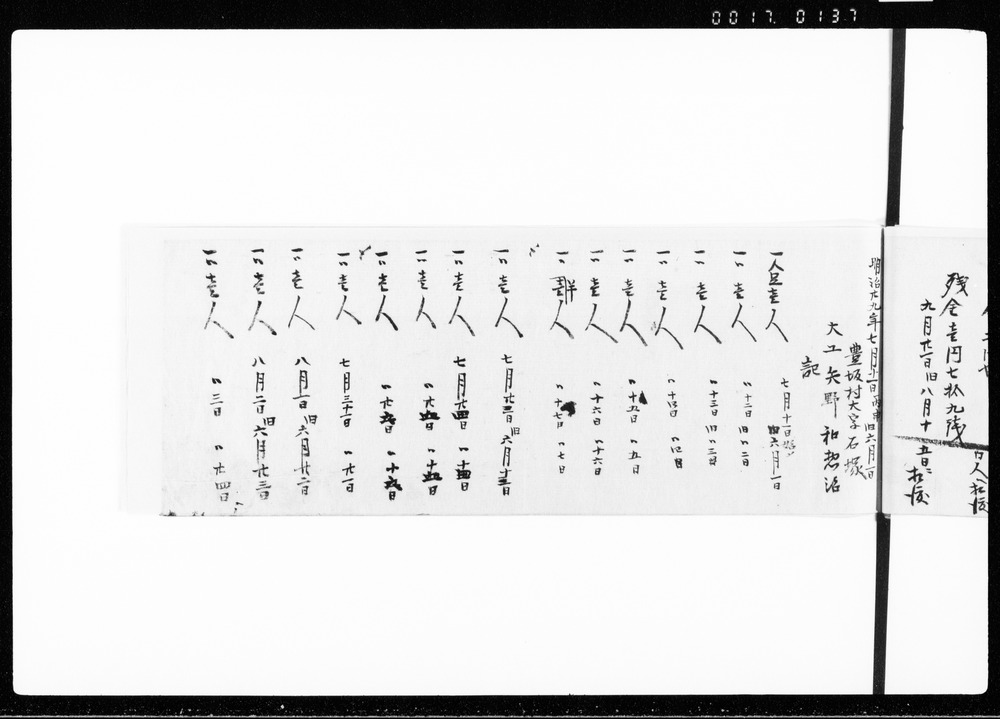 0017. 0137
残金壱円七拾九銭
九月廿一日旧八月十五日
明治廿九年七月十一日丙申旧六月一日
豊坂村大字石塚
大工矢野和惣治
記
一人足壱人 七月十一日 旧六月一日
一〃壱人 〃十二日 旧〃二日
一〃壱人 〃十三日 旧〃三日
一〃壱人 〃十四日 〃四日
一〃壱人 〃十五日 〃五日
一〃壱人 〃十六日 〃十六日
一〃人 〃十七日 〃七日
一〃壱人 七月廿三日旧六月十三日
一〃壱人 七月廿四日 〃十四日
一〃壱人 〃廿五日 〃十五日
一〃壱人 〃廿六日 〃十六日
一〃壱人 七月三十一日 〃廿一日
一〃壱人 八月一日旧六月廿二日
一〃壱人 八月二日旧六月廿三日
一〃壱人 〃三日 〃廿四日